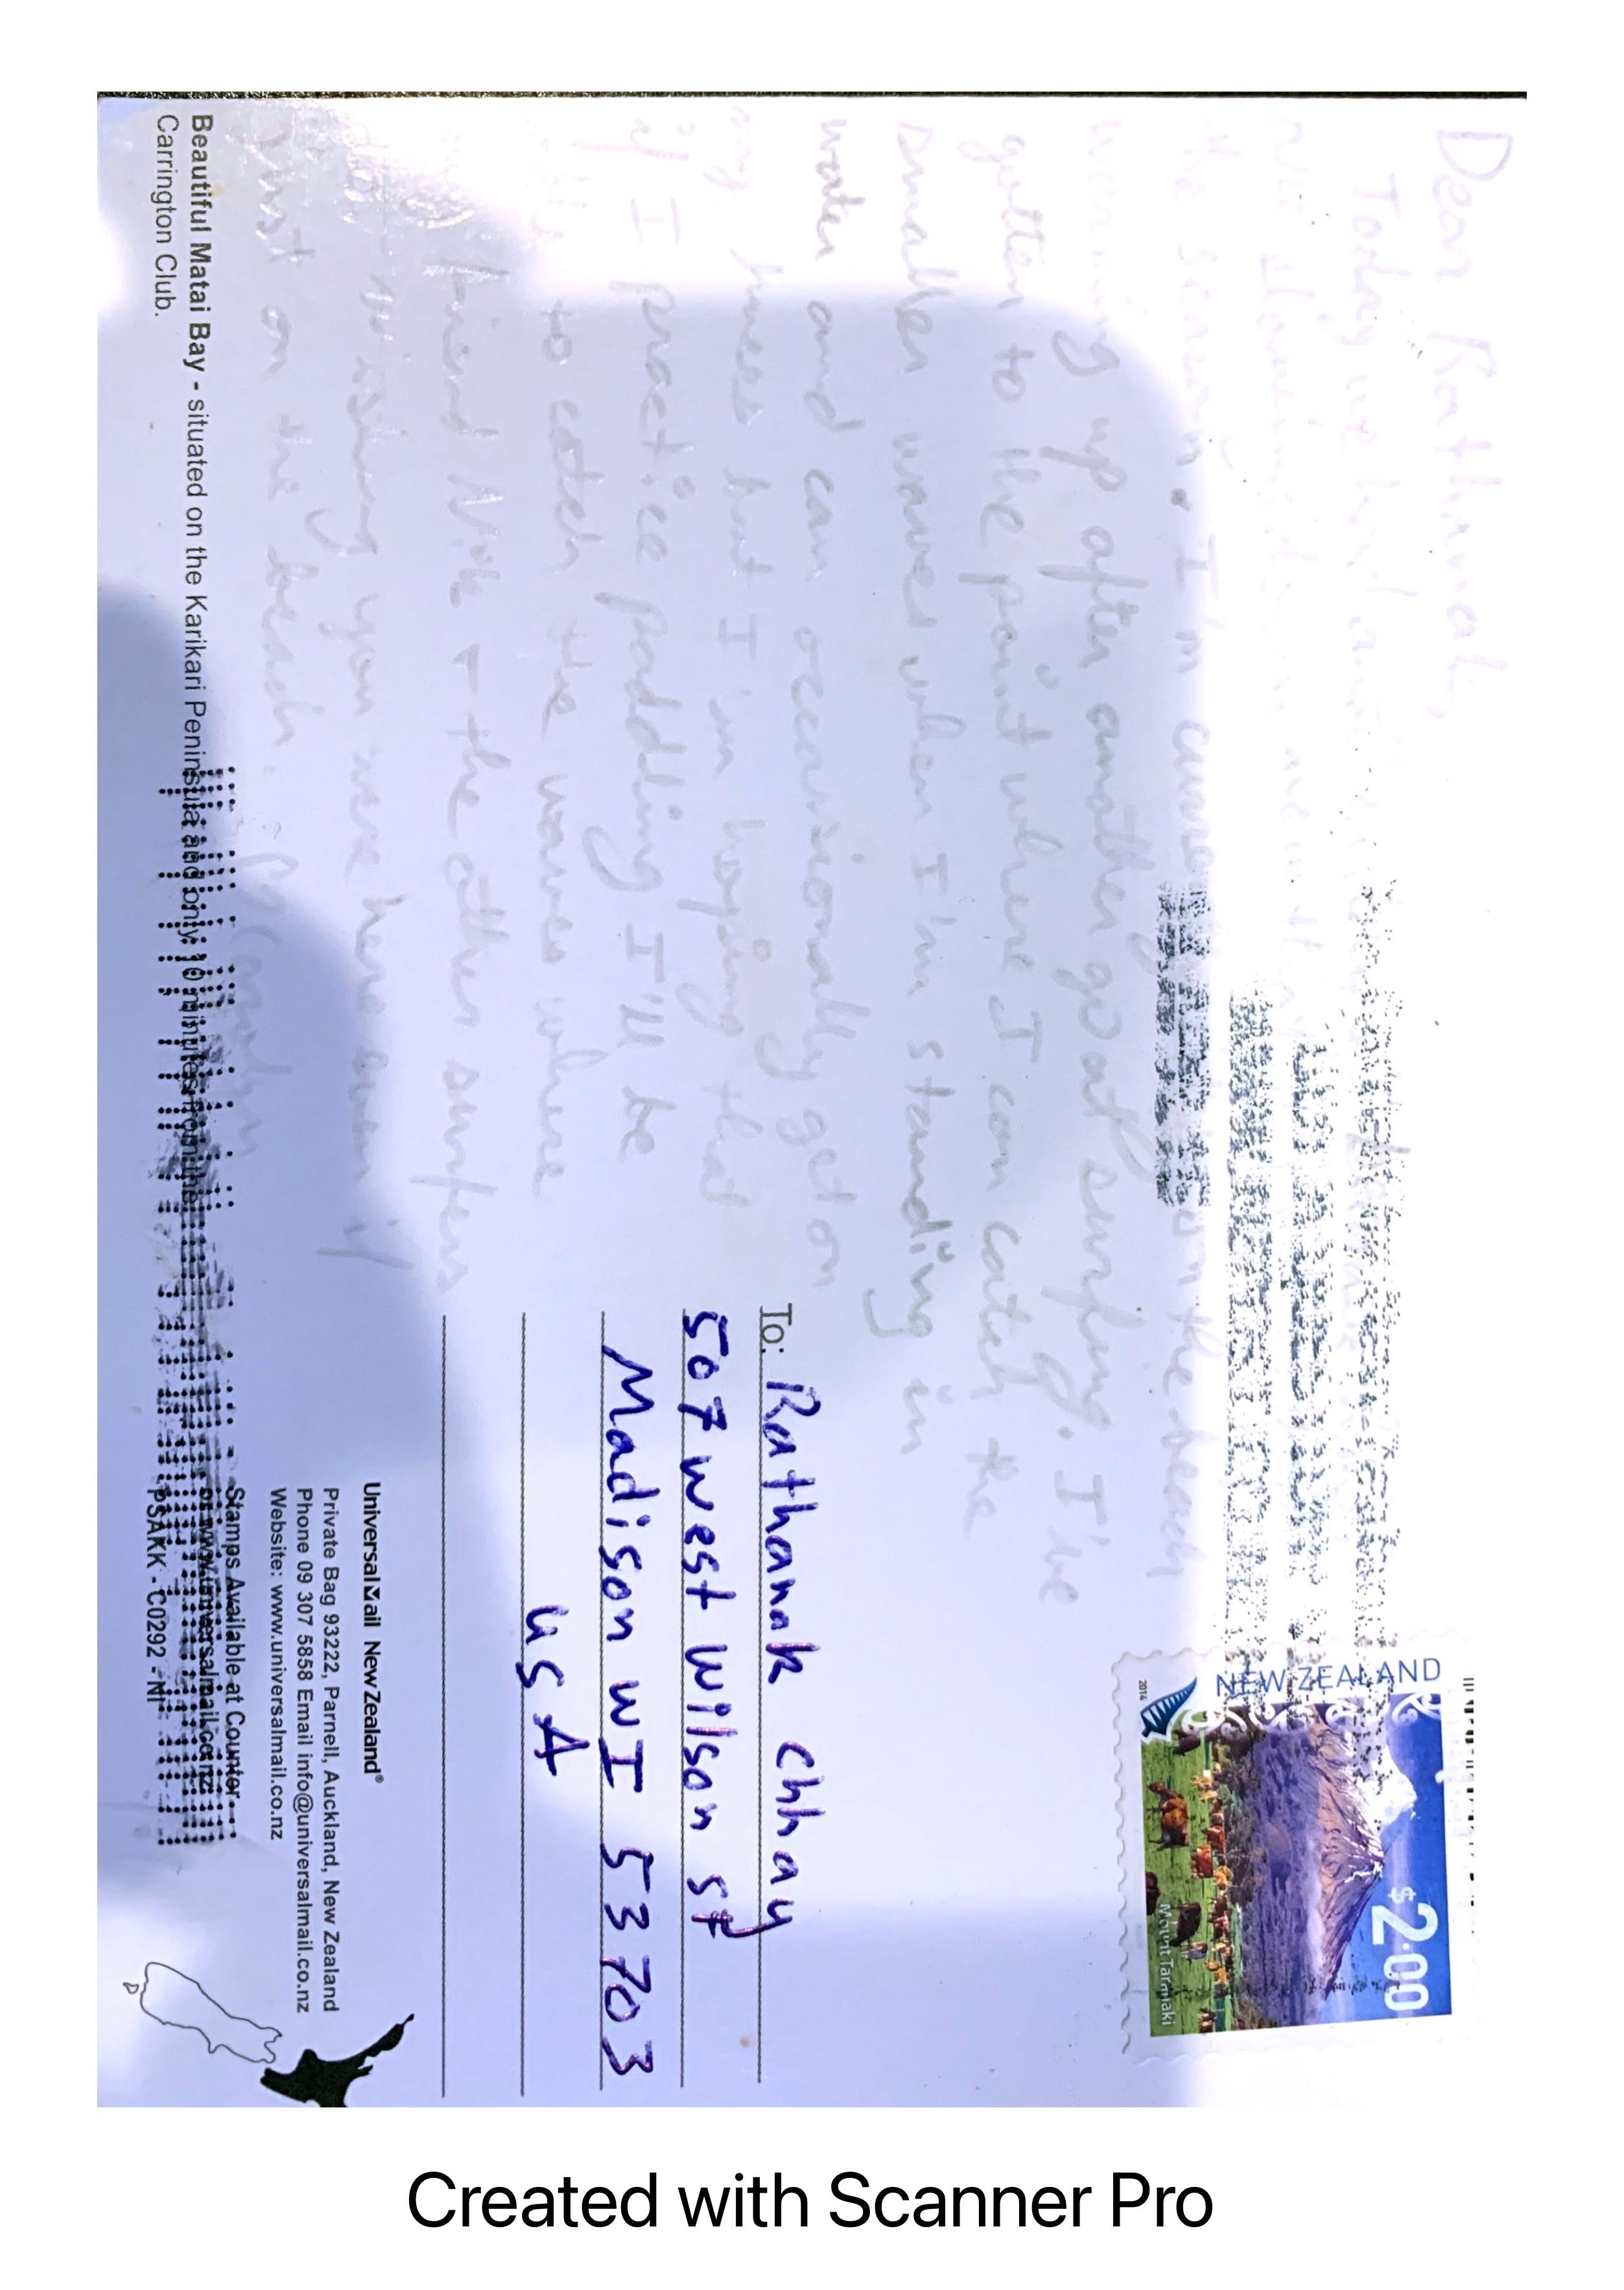 Dear Rathanak,
Today we
I'm on the beach
up after another go at surfing. I've
gotten to the point where I can catch the
smaller waves when I'm standing in
water and can occasionally get on
my knees but I'm hoping that
if I practice paddling I'll be
to catch the waves where
Nik + the other surfers
wishing you were here even if
just on the beach.
NEW ZEALAND
$2.00
Mount Taranaki
2014
To: Rathanak Chhay
507 West Wilson St
Madison WI 53703
USA
UniversalMail New Zealand®
Private Bag 93222, Parnell, Auckland, New Zealand
Phone 09 307 5858 Email info@universalmail.co.nz
Website: www.universalmail.co.nz
Stamps Available at Counter
or www.universalmail.co.nz
PSAKK - C0292 - NI
Beautiful Matai Bay - situated on the Karikari Peninsula and only 10 minutes from the
Carrington Club.
Created with Scanner Pro